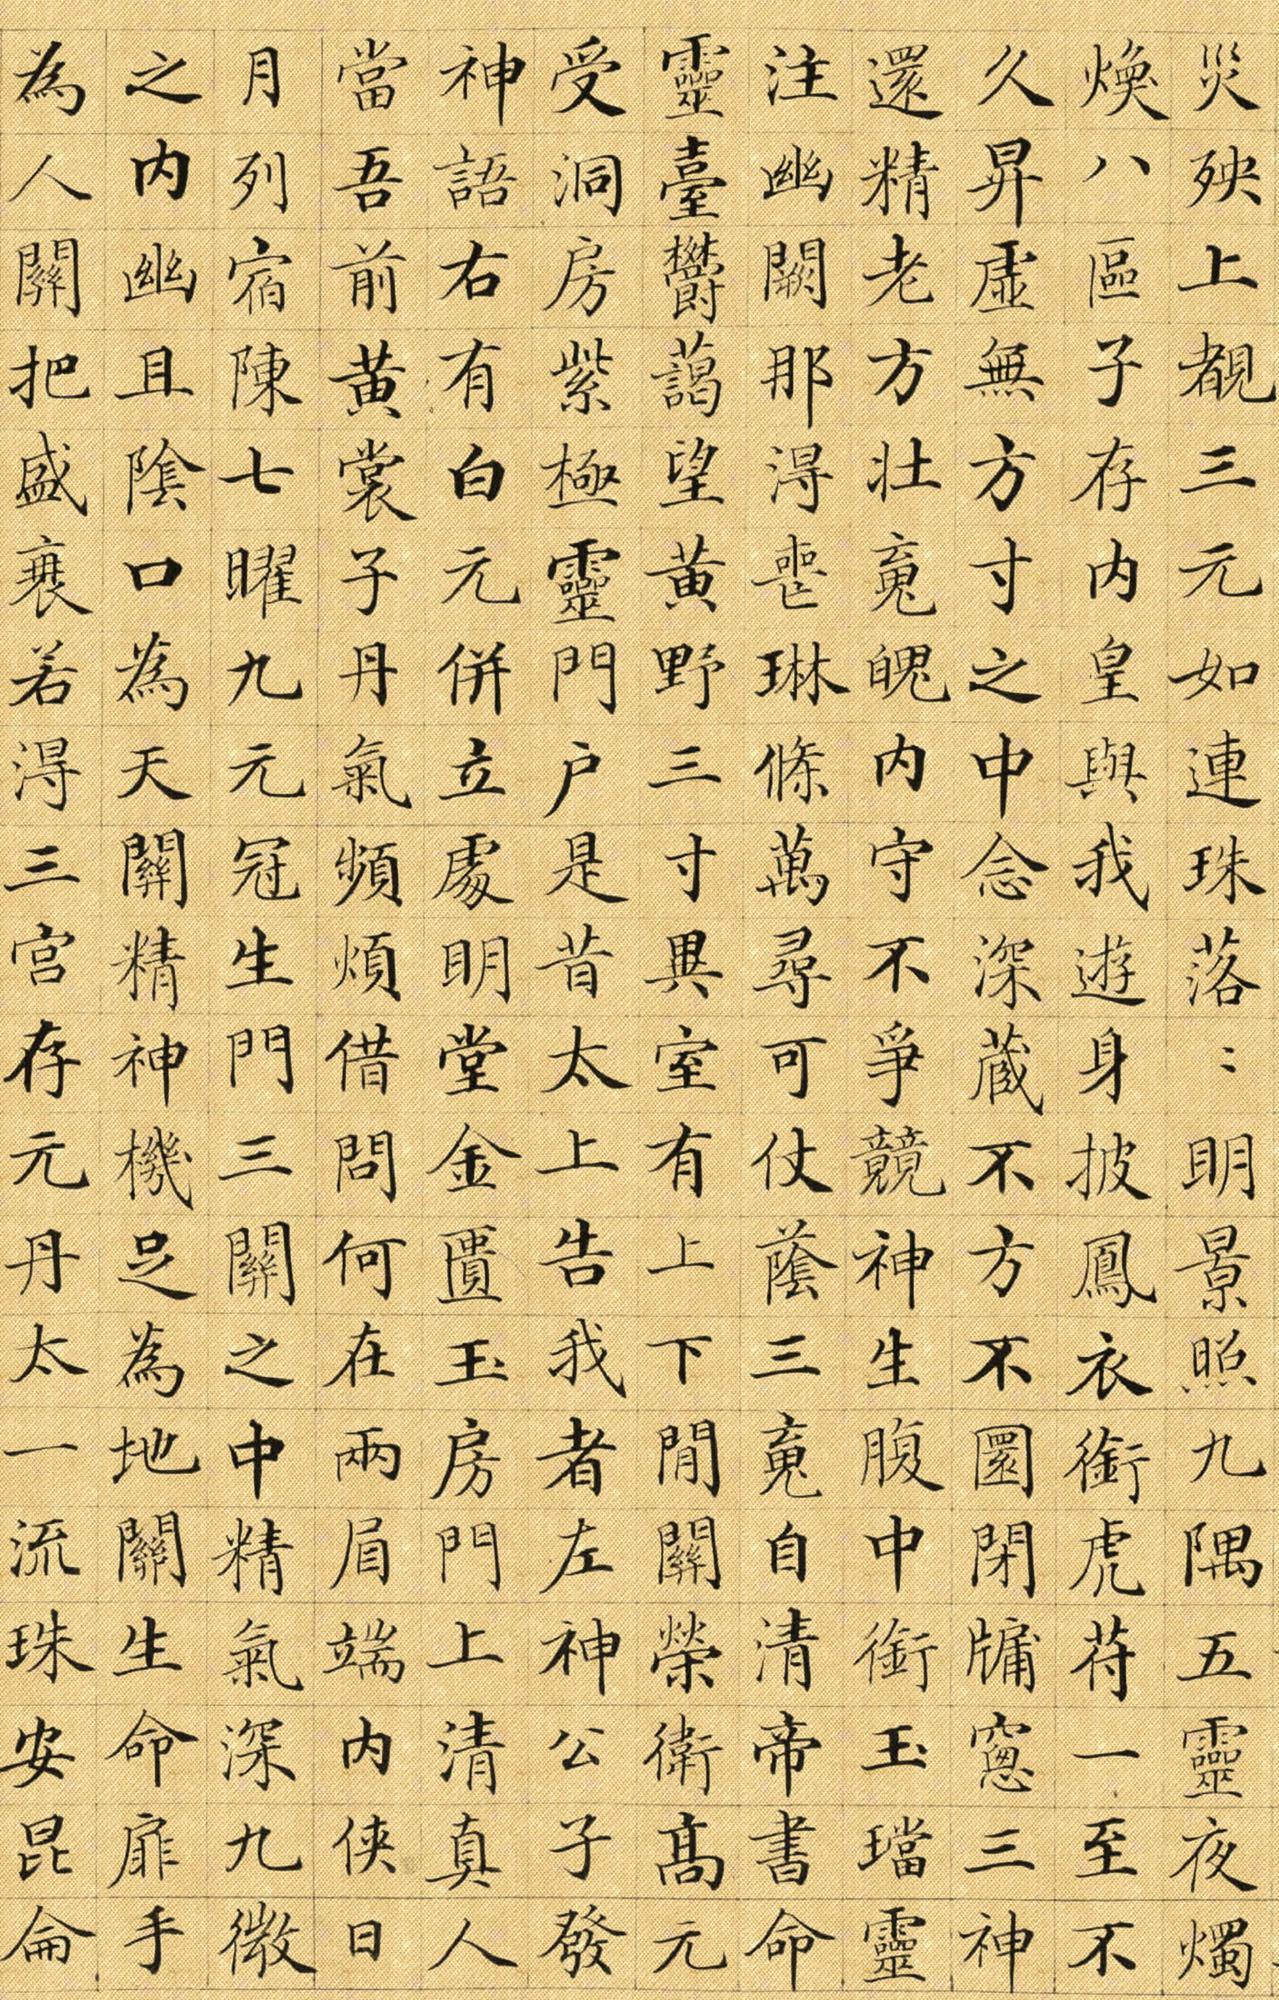 災殃上覩三元如連珠落〻明景照九隅五靈夜燭
煥八區子存内皇與我遊身披鳳衣銜虎苻一至不
久昇虛無方寸之中念深藏不方不圓閉牖窻三神
還精老方壯䰟魄内守不爭競神生腹中銜玉璫靈
注幽闕那淂喪琳條萬尋可仗蔭三䰟自清帝書命
靈臺欝藹望黄野三寸異室有上下閒關榮衛髙元
受洞房紫極靈門户是昔太上告我者左神公子發
神語右有白元併立處明堂金匱玉房門上清真人
當吾前黄裳子丹氣頻煩借問何在兩眉端内侠日
月列宿陳七曜九元冠生門三關之中精氣深九微
之内幽且陰口為天關精神機足為地關生命扉手
為人關把盛衰若淂三宫存元丹太一流珠安昆侖